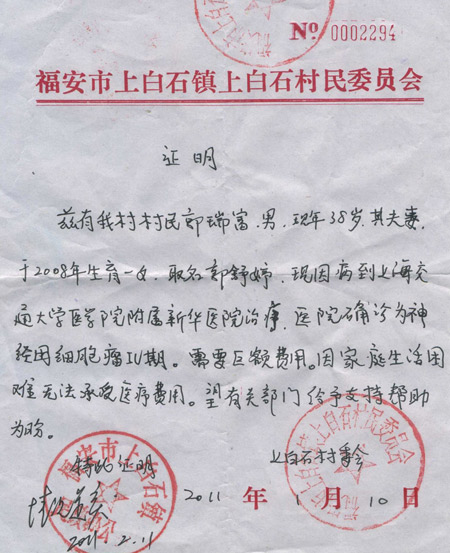 No 0002294
福安市上白石镇上白石村民委员会
证明
兹有我村村民郭瑞富，男，现年38岁，其夫妻
于2008年生育一女，取名郭舒婷，现因病到上海交
通大学医学院附属新华医院治疗，医院确诊为神
经母细胞瘤IV期。需要巨额费用。因家庭生活困
难无法承受医疗费用。望有关部门给予支持帮助
为盼。
特此证明
上白石村委会
2011年1月10日
福安市上白石镇
福安市上白石镇上白石村民委员会
2011.2.11